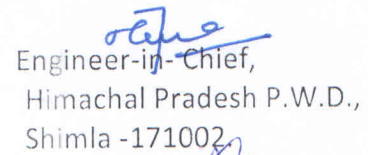 Engineer-in-Chief,
Himachal Pradesh P.W.D.,
Shimla -171002.